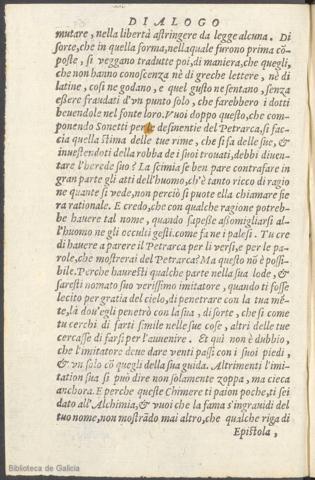 DIALOGO
mutare, nella libertà astringere da legge alcuna. Di
sorte, che in quella forma, nella quale furono prima cō-
poste, si veggano tradutte poi, di maniera, che quegli,
che non hanno conoscenza nè di greche lettere, nè di
latine, così ne godano, e quel gusto ne sentano, senza
eßere fraudati d'vn punto solo, che farebbero i dotti
beuendole nel fonte loro. Vuoi doppo questo, che com-
ponendo Sonetti per le desinentie del Petrarca, si fac-
cia quella stima delle tue rime, che si fa delle sue, &
inuestendoti della robba de i suoi trouati, debbi diuen-
tare l'herede suo? La scimia se ben pare contrafare in
gran parte gli atti dell'huomo, ch'è tanto ricco di ragio
ne quante si vede, non perciò si puote ella chiamare sie
ra rationale. E credo, che con qualche ragione potreb-
be hauere tal nome, quando sapeße aßomigliarsi al-
l'huomo ne gli occulti gesti. come fa ne i palesi. Tu cre
di hauere a parere il Petrarca per li versi, e per le pa-
role, che mostrerai del Petrarca? Ma questo nō è possi-
bile. Perche hauresti qualche parte nella sua lode, &
saresti nomato suo verissimo imitatore, quando ti fosse
lecito per gratia del cielo, di penetrare con la tua mē-
te, là dou'egli penetrò con la sua, di sorte, che sì come
tu cerchi di farti simile nelle sue cose, altri delle tue
cercasse di farsi per l'auuenire. Et quì non è dubbio,
che l'imitatore deue dare venti passi con i suoi piedi,
& vn solo cō quegli della sua guida. Altrimenti l'imi-
tation sua si può dire non solamente zoppa, ma cieca
anchora. E perche queste Chimere ti paion poche, ti sei
dato all'Alchimia, & vuoi che la fama s'ingrauidi del
tuo nome, non mostrādo mai altro, che qualche riga di
Epistola,
Biblioteca de Galicia